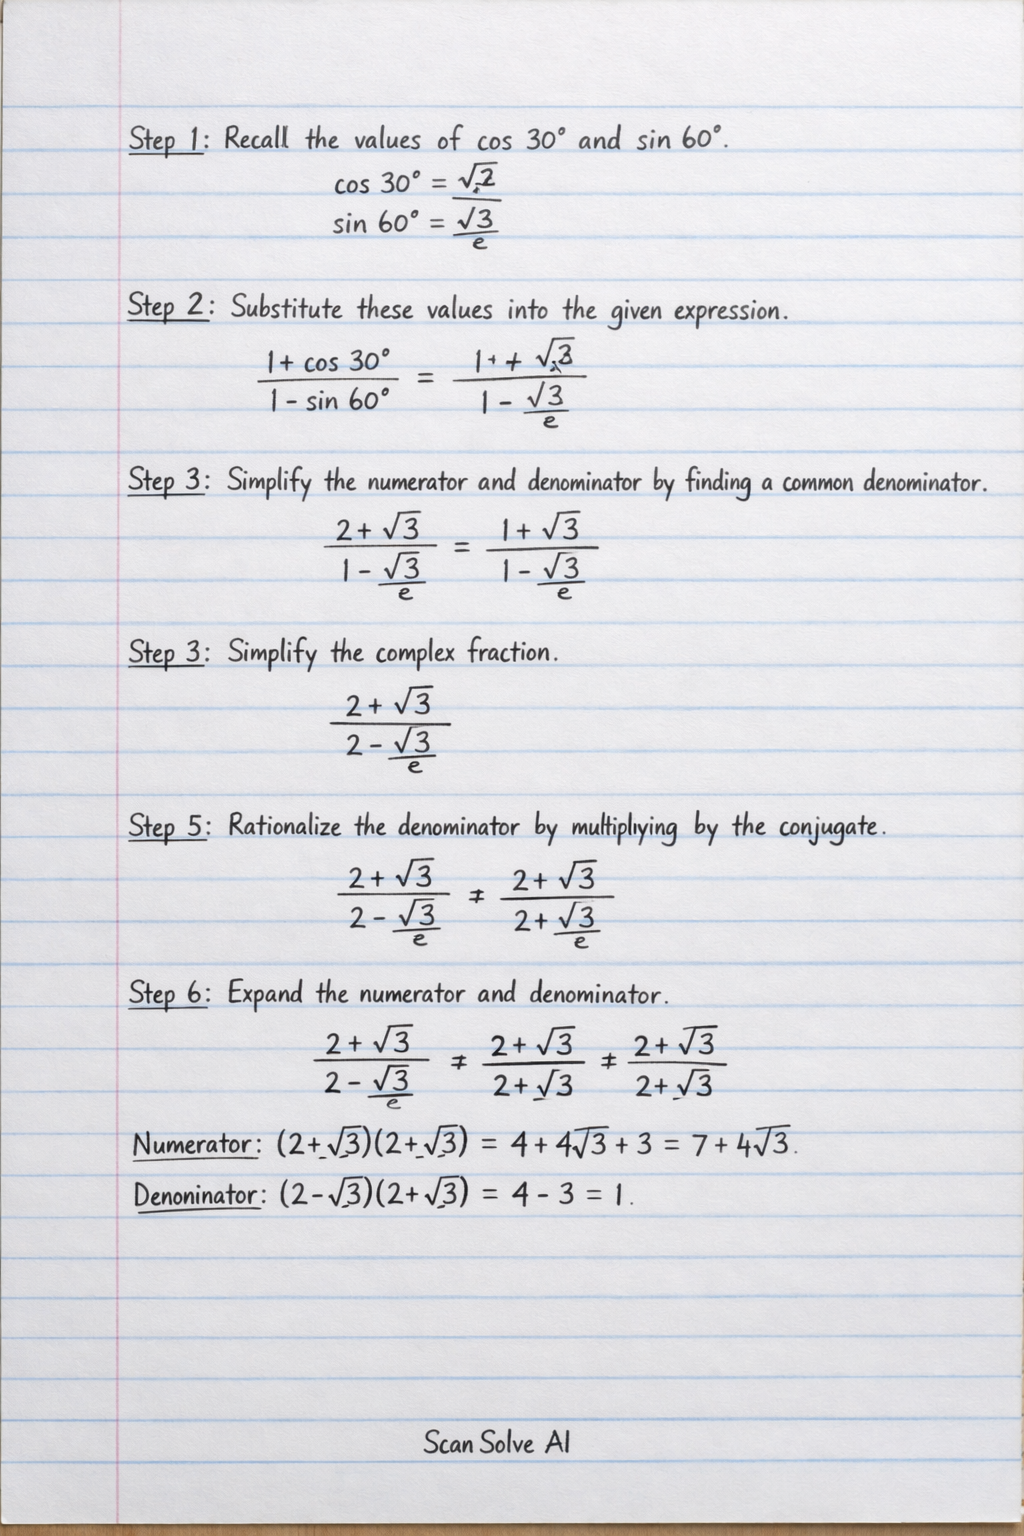 Step 1: Recall the values of cos 30° and sin 60°.
cos 30° = √2
sin 60° = √3/e
Step 2: Substitute these values into the given expression.
1 + cos 30° / 1 - sin 60° = 1 + + √3 / 1 - √3/e
Step 3: Simplify the numerator and denominator by finding a common denominator.
2 + √3 / 1 - √3/e = 1 + √3 / 1 - √3/e
Step 3: Simplify the complex fraction.
2 + √3 / 2 - √3/e
Step 5: Rationalize the denominator by multiplying by the conjugate.
2 + √3 / 2 - √3/e ≠ 2 + √3 / 2 + √3/e
Step 6: Expand the numerator and denominator.
2 + √3 / 2 - √3/e ≠ 2 + √3 / 2 + √3 ≠ 2 + √3 / 2 + √3
Numerator: (2+√3)(2+√3) = 4 + 4√3 + 3 = 7 + 4√3.
Denoninator: (2-√3)(2+√3) = 4 - 3 = 1.
Scan Solve AI